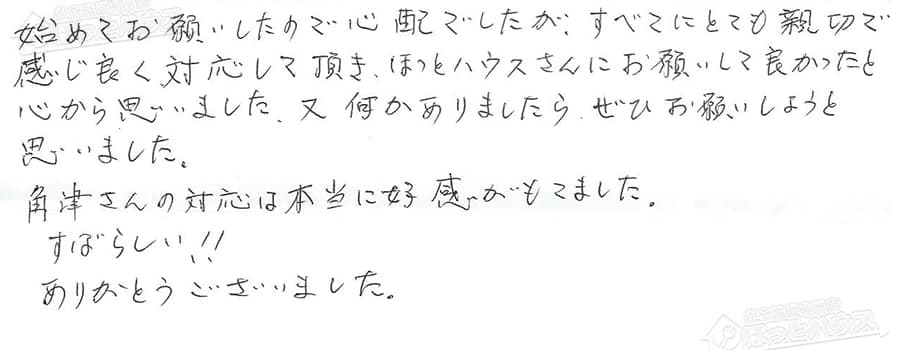 始めてお願いしたので心配でしたが、すべてにとても親切で
感じ良く対応して頂き、ほっとハウスさんにお願いして良かったと
心から思いました、又何かありましたら、ぜひお願いしようと
思いました。
角津さんの対応は本当に好感がもてました。
すばらしい!!
ありがとうございました。
ほっとハウス